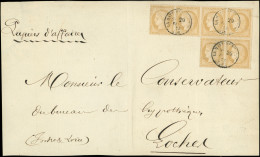 Papiers d'affaires
Monsieur le Conservateur
du bureau des hypothèques
(Indre & Loire)
Loches